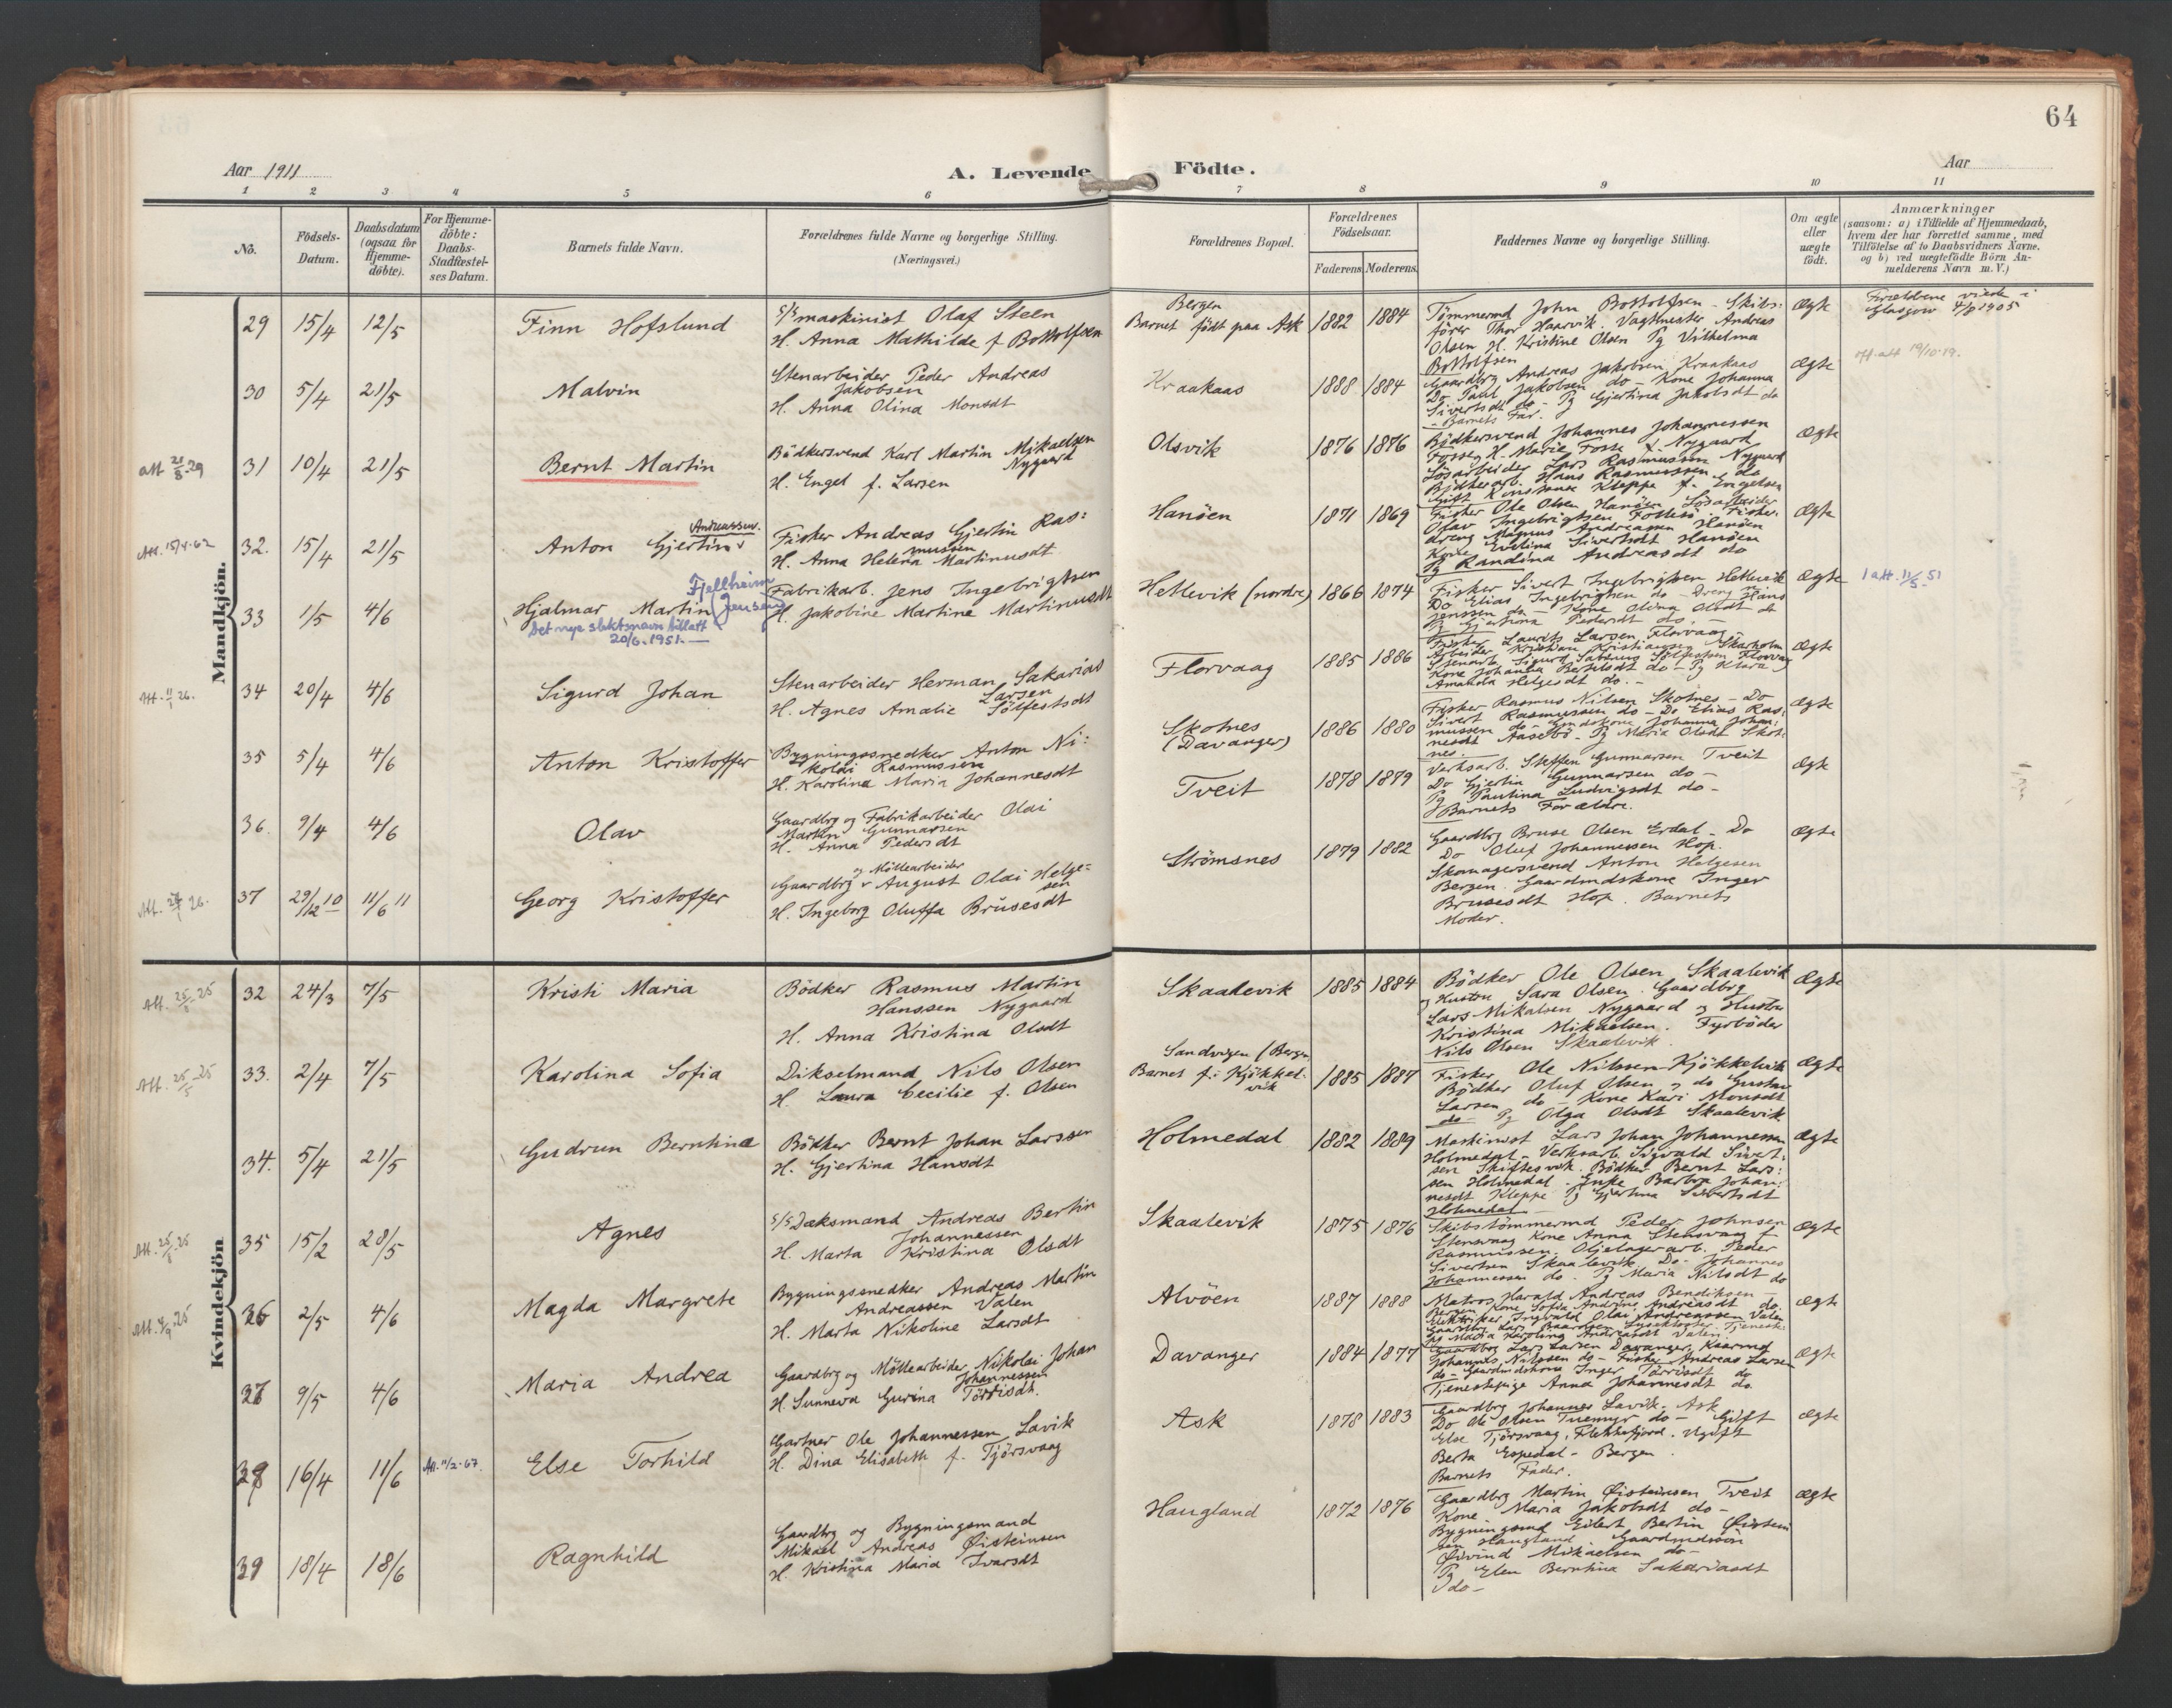 64
Aar 1911
A. Levende Födte.
Aar
1 2 3 4 5 6 7 8 9 10 11
No.
Födsels-Datum.
Daabsdatum (ogsaa for Hjemme-döbte).
For Hjemme-döbte: Daabs-Stadfæstel-ses Datum.
Barnets fulde Navn.
Forældrenes fulde Navne og borgerlige Stilling.
(Næringsvei.)
Forældrenes Bopæl.
Forældrenes Födselsaar.
Faderens. Moderens.
Faddernes Navne og borgerlige Stilling.
Om ægte eller uægte födt.
Anmærkninger
(saasom: a) i Tilfælde af Hjemmedaab,
hvem der har forrettet samme, med
Tilföielse af to Daabsvidners Navne.
og b) ved uægtefödte Börn An-
melderens Navn m. V.)
Mandkjön.
29 15/4 12/5 Finn Hofslund
S/S maskinist Olaf Steen
H. Anna Mathilde f Bottolfsen
Bergen
Barnet født paa Ask 1882 1884
Tömmermd John Bottolfsen - Skibs:
fører Thor Haarvik. Vagtmester Andreas
Olsen H. Kristine Olsen Pg Vilhelma
Bottolfsen
Ægte
Forældrene viede i
Glasgow 4/8 1905
30 5/4 21/5 Malvin
Stenarbeider Peder Andreas
Jakobsen
H. Anna Olina Monsdt
Kraakaas 1888 1884
Gaardbrg Andreas Jakobsen Kraakaas
Do Paul Jakobsen do - Kone Johanna
Sivertsdt do - Pg Gjertina Jakobsdt do
- Barnets Far.
Ægte
att. 19/10-19.
att 21/8.29
31 10/4 21/5 Bernt Martin
Bödkersvend Karl Martin Mikaelsen
Nygaard
H. Engel f. Larsen
Olsvik 1876 1876
Bödkersvend Johannes Johannessen
Fosse, H. Marie Fosse, Nygaard
Lösarbeider Lars Rasmussen Nygaard
Bödkerarb. Hans Rasmussen do
Gift Konstanse Kleppe f. Engelsen
Ægte
Att. 15/4-62
32. 15/4 21/5 Anton Gjertin Andreassen.
Fisker Andreas Gjertin Ras:
mussen
H. Anna Helena Martinusdt
Hanöen 1871 1869
Fisker Ole Olsen Hanöen Lösarbeider
Olav Ingebrigtsen Follesö. Fisker:
dreng Magnus Andreassen Hanöen
Kone Evelina Sivertsdt Hanöen
Pg Randina Andreasdt do
Ægte
33 1/5 4/6 Hjalmar Martin Fjellheim Jensen
Det nye slektsnavn tillatt
20/6.1951.
Fabrikarb. Jens Ingebrigtsen
H. Jakobine Martine Martinusdt
Hetlevik (nordre) 1866 1874
Fisker Sivert Ingebrigtsen Hetlevik
Do Elias Ingebrigtsen do - Dreng Hans
Jenssen do - Kone Olina Olsdt do
Pg Gjertina Pedersdt do. -
Ægte
1 att. 11/5. 51
Att. 11/1 26.
34 20/4 4/6 Sigurd Johan
Stenarbeider Herman Sakarias
Larsen
H. Agnes Amalie Sölfestsdt
Florvaag 1885 1886
Fisker Laurits Larsen Florvaag -
Arbeider Kristian Kristiansen Skarholm
Stenarb. Sigurd Sölfestsen Florvaag
Kone Johanna Bertilsdt do - Pg Klara
Amanda Helgesdt do. -
Ægte
35 5/4 4/6 Anton Kristoffer
Bygningssnedker Anton Ni:
kolai Rasmussen
H. Karolina Maria Johannesdt
Skotnes
(Davanger) 1886 1880
Fisker Rasmus Nilsen Skotnes - Do
Sivert Rasmussen do - Do Elias Ras:
mussen do - Gmdskone Johanna Johan:
nesdt Aasebö - Pg Maria Olsdt Skot:
nes.
Ægte
36. 9/4 4/6 Olav
Gaardbrg og Fabrikarbeider Olai
Martin Gunnarsen
H. Anna Pedersdt
Tveit 1878 1879
Verksarb. Steffen Gunnarsen Tveit
Do Gjertin Gunnarsen do -
Pg Paulina Ludvigsdt do -
Barnets Forældre.
Ægte
37 29/12 10 11/6 11 Georg Kristoffer
og Möllearbeider
Gaardbrg August Olai Helge=
sen
H. Ingeborg Oluffa Brusesdt
Strömsnes 1879 1882
Gaardbrg Bruse Olsen Erdal - Do
Do Oluf Johannessen Hop.
Skomagersvend Anton Helgesen
Bergen. Gaardmdskone Inger
Brusesdt Hop. Barnets
Moder.
Ægte
Kvindekjön
32 24/3 7/5 Kristi Maria
Bödker Rasmus Martin
Hanssen Nygaard
H. Anna Kristina Olsdt
Skaalevik 1885 1884
Bödker Ole Olsen Skaalevik
og Hustru Sara Olsen. Gaardbrg
Lars Mikalsen Nygaard og Hustru
Kristina Mikaelsen. Fyrböder
Nils Olsen Skaalevik.
Ægte
Att. 25/5-25
33. 2/4 7/5 Karolina Sofia
Dikselmand Nils Olsen
H. Laura Cecilie f. Olsen
Sandvigen (Bergen
Barnet f. i Kjökkel-
vik 1885 1887
Fisker Ole Nilssen Kjökkelvik
Bödker Oluf Olsen og do Gustav
Larsen do - Kone Kari Monsdt
do - Pg Olga Olsdt Skaalevik
Ægte
34. 5/4 21/5 Gudrun Berntina
Bödker Bernt Johan Larssen
H. Gjertina Hansdt
Holmedal 1882 1889
Maskinist Lars Johan Johannessen
Holmedal - Verksarb. Sigvald Sivert:
sen Skiftesvik. Bödker Bernt Lars:
sen Holmedal. Enke Barbra Johan:
nesdt Kleppe Pg Gjertina Sivertsdt
Holmedal
Ægte
35 15/2 28/5 Agnes
S/S Dæksmand Andreas Bertin
Johannessen
H. Marta Kristina Olsdt
Skaalevik 1875 1876
Skibstömmermd Peder Johnsen
Stensvaag Kone Anna Stensvaag f
Rasmussen. Oljelagerarb. Peder
Sivertsen Skaalevik. Do. Johannes
Johannessen do. Pg Maria Nilsdt do
Ægte
36 2/5 4/6 Magda Margrete
Bygningssnedker Andreas Martin
Andreassen Valen
H. Marta Nikoline Larsdt
Alvöen 1887 1888
Matros Harald Andreas Bendiksen -
Bergen Kone Sofia Andrine Andreasdt do.
Elektriker Ingvald Olai Andreassen Valen
Pg Maria Karolina Andreasdt Valen.
Ægte
37 9/5 4/6 Maria Andrea
Gaardbrg og Möllearbeider Nikolai Johan
Johannessen
H. Sunneva Gurina Törrisdt.
Davanger 1884 1877
Gaardbrg Lars Larsen Davanger, Kaarmd
Johannes Nilssen do - Fisker Andreas Larsen
do - Gaardmdskone Inger Törrisdt do
Tjenestepige Anna Johannesdt do.
Ægte
38 16/4 11/6 Att. 11/2-67. Else Torhild
Gartner Ole Johannessen Lavik
H. Dina Elisabeth f. Tjörsvaag
Ask 1878 1883
Gaardbrg Johannes Lavik - Ask
Do Ole Olsen Tuemyr do - Gift
Else Tjörsvaag, Flekkefjord. Ugift
Berta Espedal - Bergen.
Barnets Fader.
Ægte
39 18/4 18/6 Ragnhild
Gaardbrg og Bygningsmand
Mikael Andreas Øisteinsen
H. Kristina Maria Ivarsdt
Haugland 1872 1876
Gaardbrg Martin Øisteinsen Tveit
Kone Maria Jakobsdt do -
Bygningsmd Eilert Bertin Øistein
sen Haugland Gaardmdssön
Øivind Mikaelsen do -
Pg Elen Berntina Sakariasdt
do -
Ægte